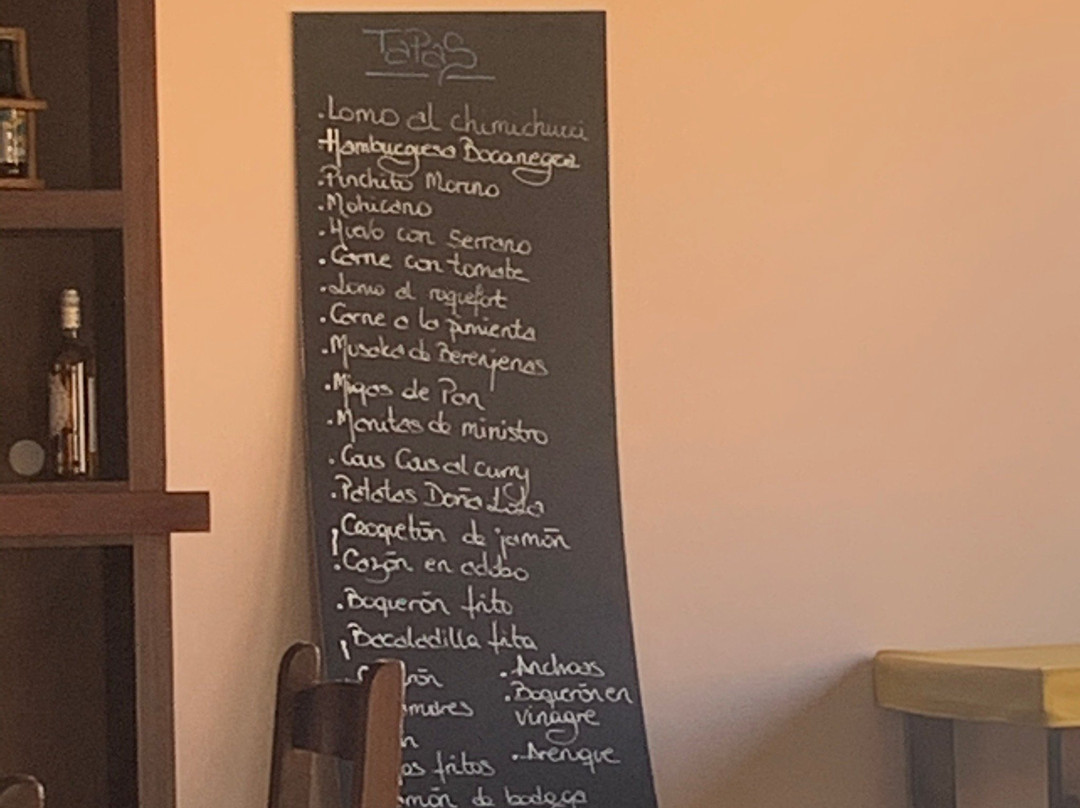 TAPAS
.Lomo al chimichurri
.Hamburguesa Bocanegra
.Pinchito Moruno
.Mohicano
.Huevo con Serrano
.Carne con tomate
.Lomo al roquefort
.Carne a la pimienta
.Musaka de Berenjenas
.Migas de Pan
.Manitas de ministro
.Cous Cous al curry
.Patatas Doña Lola
Croquetón de jamón
.Cazón en adobo
.Boquerón frito
Bacaladilla frita
.Anchoas
.Boquerón en
vinagre
.Arenque
fritos
de bodega